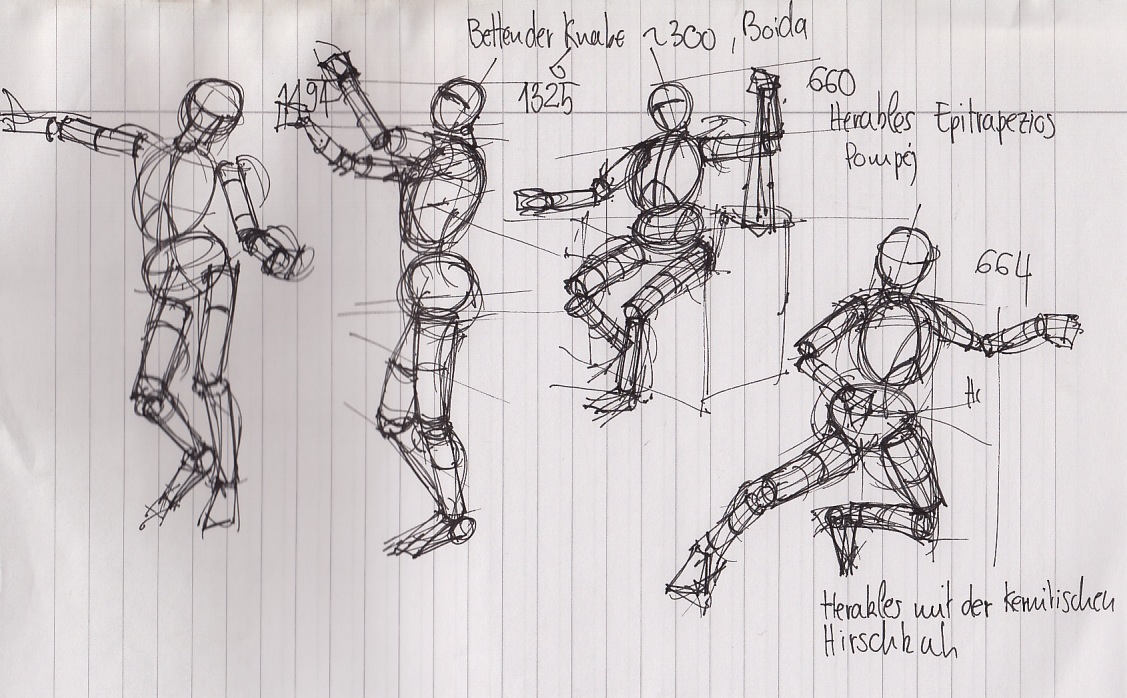 Bettender Knabe ~300, Boida
1191
1325
660
Herakles Epitrapezios
Pompéj
664
Hc
Herakles mit der kernitischen
Hirschkuh